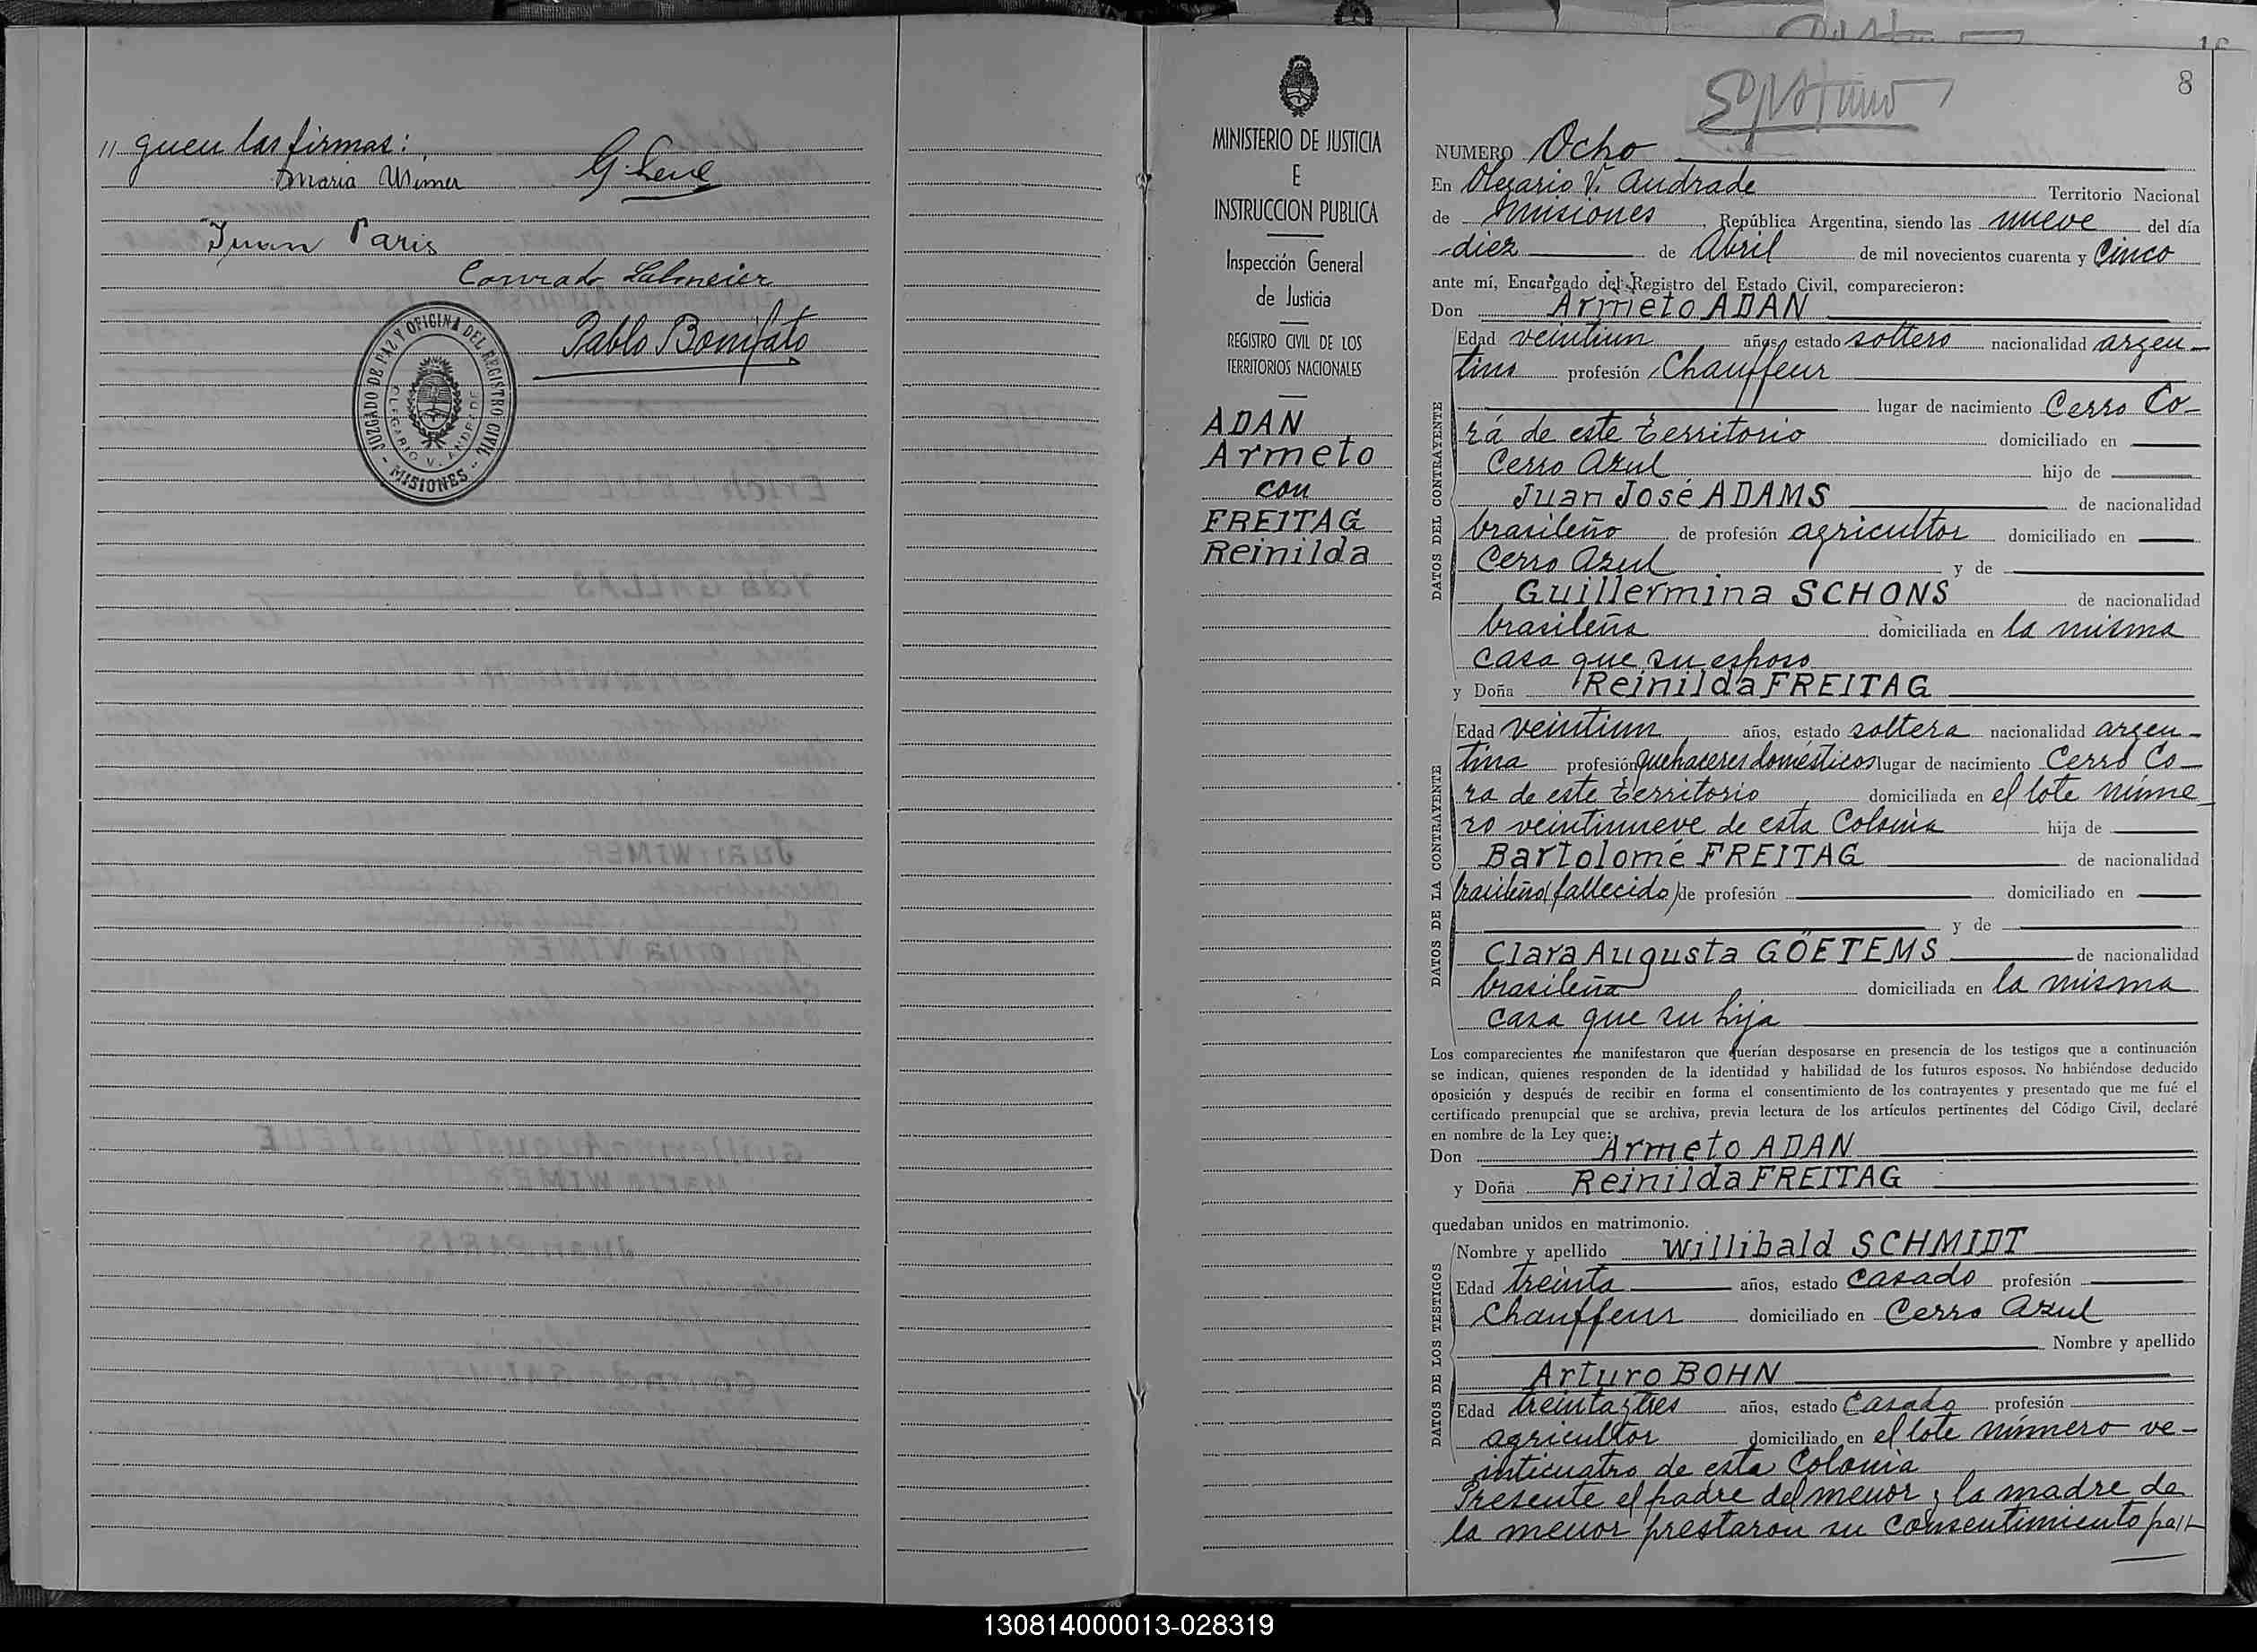 // guen las firmas:
Maria Wimer
G. Leue
Juan Paris
Conrado Salmeier
Pablo Bonifato
JUZGADO DE PAZ Y OFICINA DEL REGISTRO CIVIL
OLEGARIO V. ANDRADE
- MISIONES -
MINISTERIO DE JUSTICIA
E
INSTRUCCION PUBLICA
Inspección General
de Justicia
REGISTRO CIVIL DE LOS
TERRITORIOS NACIONALES
ADAN
Armeto
con
FREITAG
Reinilda
8
NUMERO Ocho
En Olegario V. Andrade Territorio Nacional
de Misiones, República Argentina, siendo las nueve del día
diez de Abril de mil novecientos cuarenta y Cinco
ante mí, Encargado del Registro del Estado Civil, comparecieron:
Don Armeto ADAN
DATOS DEL CONTRAYENTE
Edad veintiun años, estado soltero nacionalidad argen-
tino profesión Chauffeur
lugar de nacimiento Cerro Co-
rá de este territorio domiciliado en
Cerro Azul hijo de
Juan José ADAMS de nacionalidad
brasileño de profesión agricultor domiciliado en
Cerro Azul y de
Guillermina SCHONS de nacionalidad
brasileña domiciliada en la misma
casa que su esposo
y Doña Reinilda FREITAG
DATOS DE LA CONTRAYENTE
Edad veintiun años, estado soltera nacionalidad argen-
tina profesión quehaceres domésticos lugar de nacimiento Cerro Co-
ra de este territorio domiciliada en el lote núme-
ro veintinueve de esta Colonia hija de
Bartolomé FREITAG de nacionalidad
brasileño (fallecido) de profesión domiciliado en
y de
Clara Augusta GÖETEMS de nacionalidad
brasileña domiciliada en la misma
casa que su hija
Los comparecientes me manifestaron que querían desposarse en presencia de los testigos que a continuación
se indican, quienes responden de la identidad y habilidad de los futuros esposos. No habiéndose deducido
oposición y después de recibir en forma el consentimiento de los contrayentes y presentado que me fué el
certificado prenupcial que se archiva, previa lectura de los artículos pertinentes del Código Civil, declaré
en nombre de la Ley que:
Don Armeto ADAN
y Doña Reinilda FREITAG
quedaban unidos en matrimonio.
DATOS DE LOS TESTIGOS
Nombre y apellido Willibald SCHMIDT
Edad treinta años, estado Casado profesión
Chauffeur domiciliado en Cerro Azul
Nombre y apellido
Arturo BOHN
Edad treinta y tres años, estado Casado profesión
agricultor domiciliado en el lote número ve-
inticuatro de esta Colonia
Presente el padre del menor y la madre de
la menor prestaron su consentimiento pa//
130814000013-028319